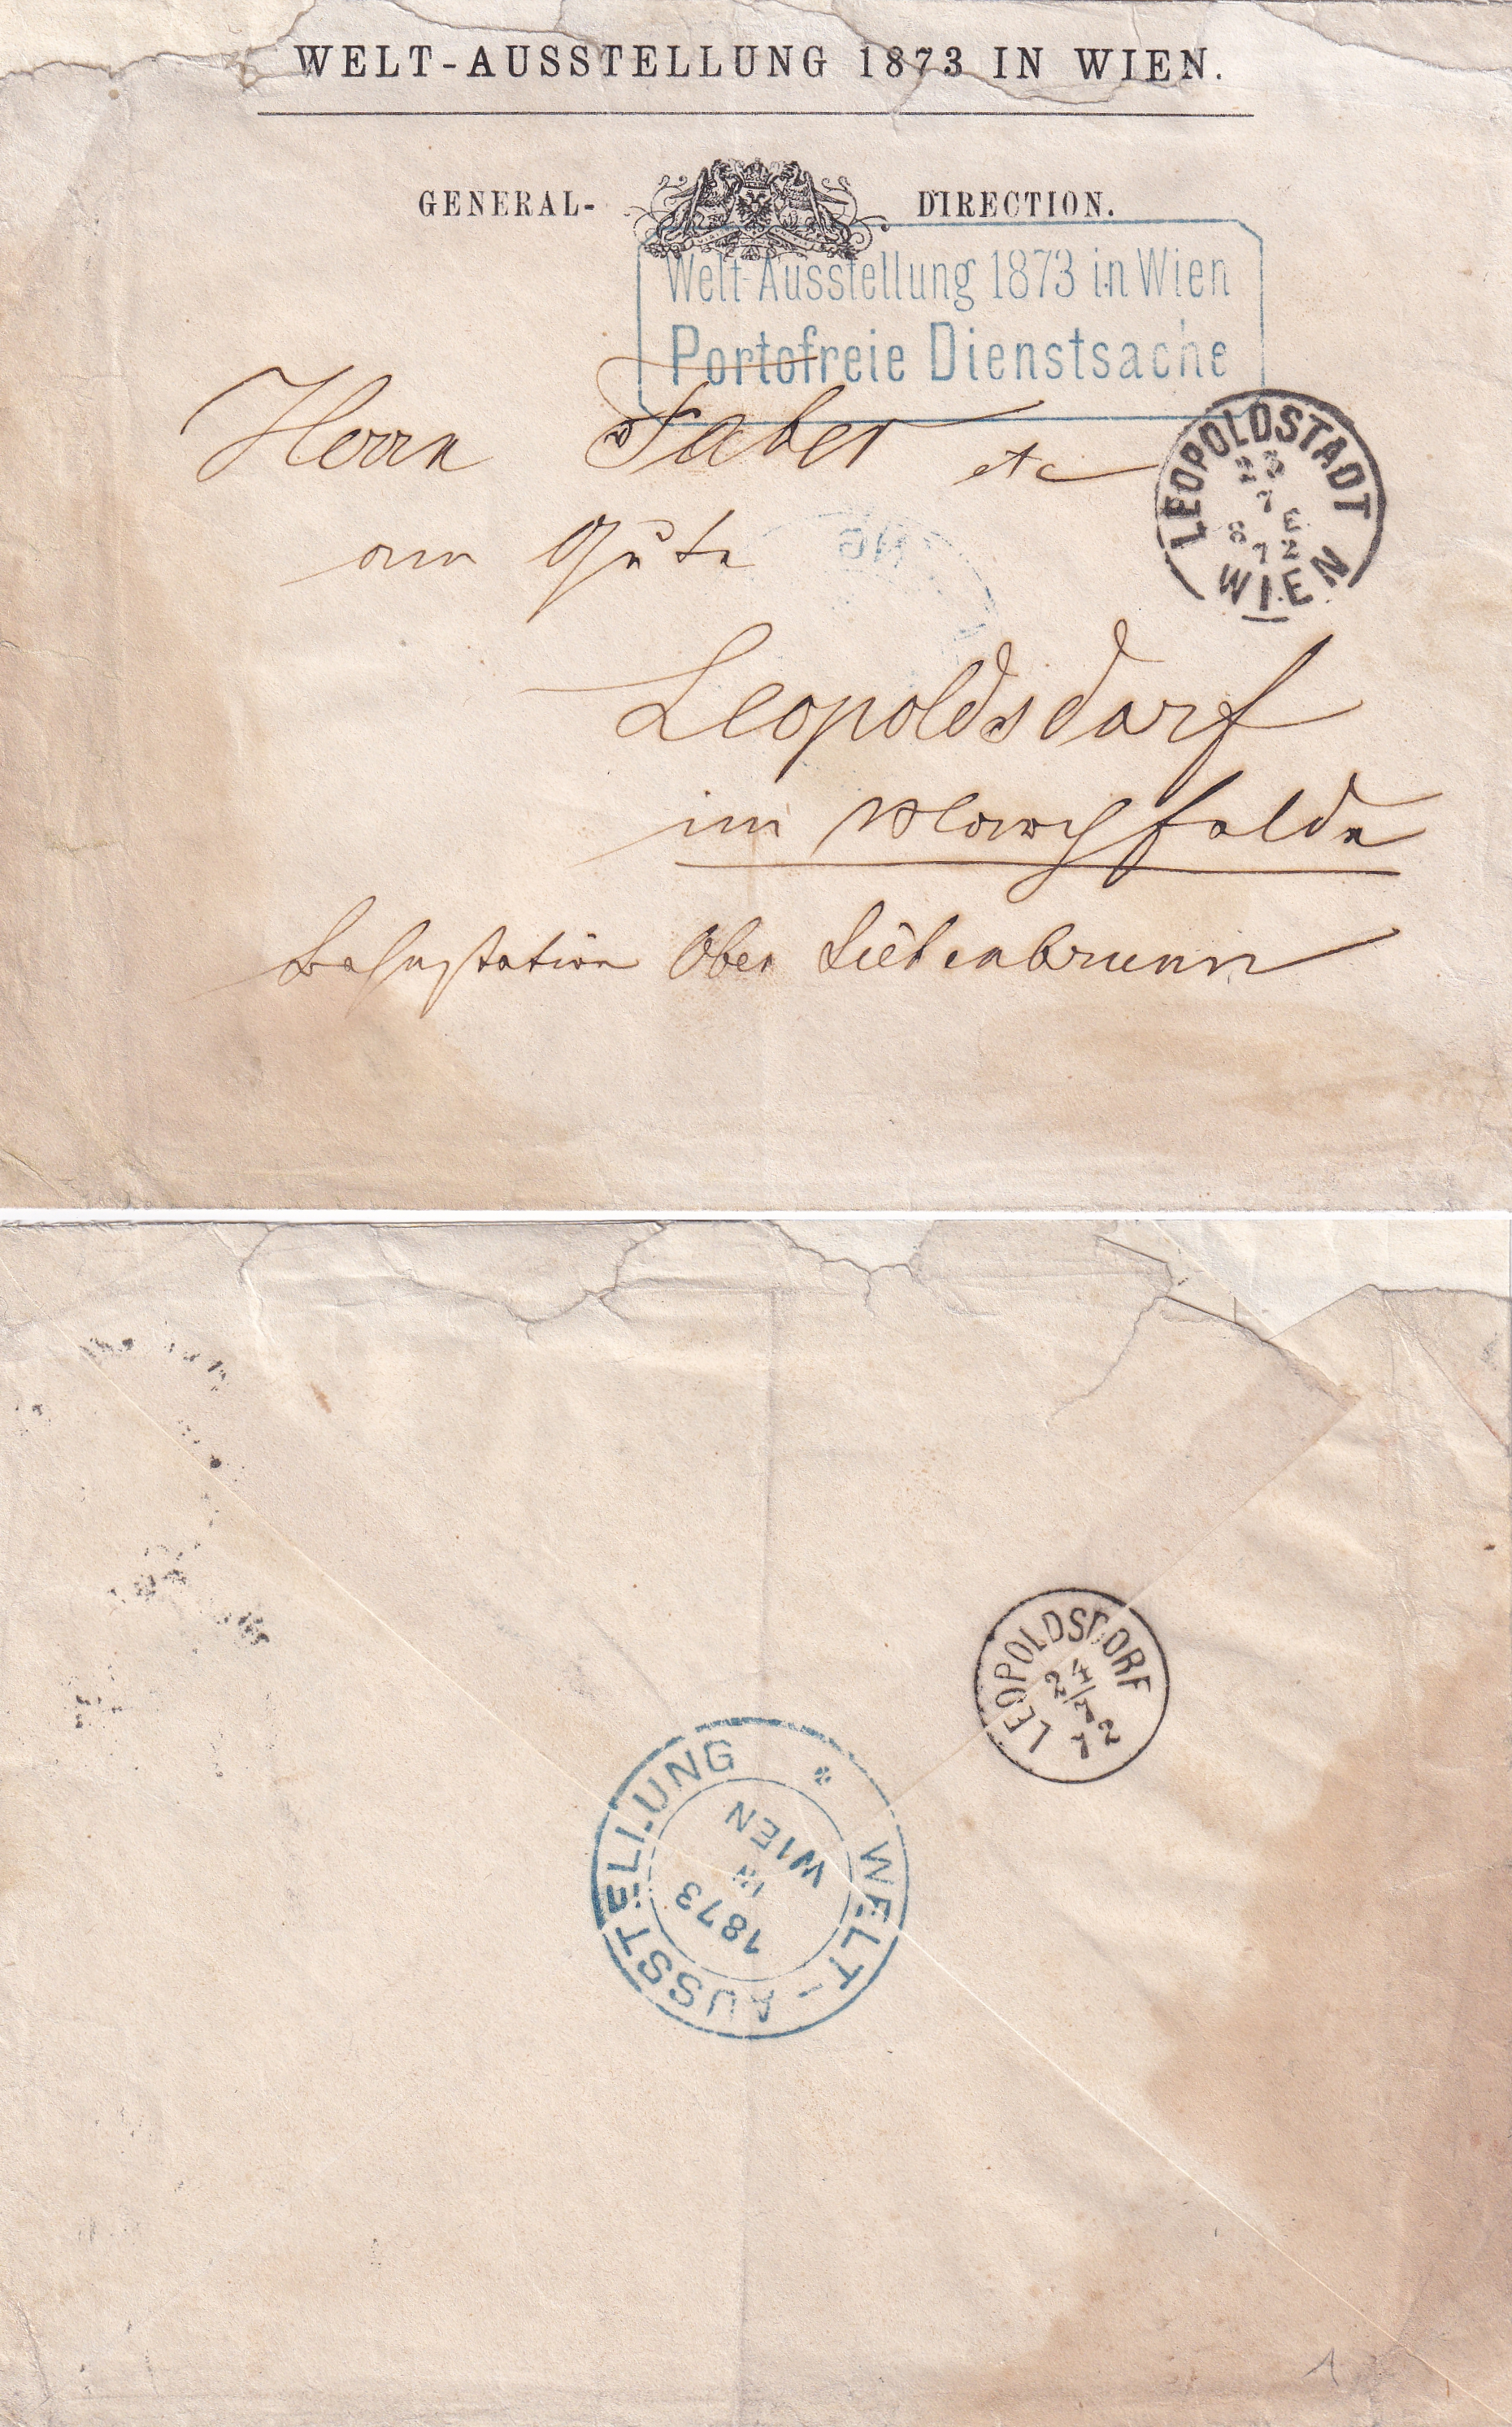 WELT-AUSSTELLUNG 1873 IN WIEN.
GENERAL- DIRECTION.
Welt-Ausstellung 1873 in Wien
Portofreie Dienstsache
Herrn Faber etc
LEOPOLDSTADT
23
7 E
8 72
WIEN
am Gute
NG
Leopoldsdorf
im Marchfelde
Bahnstation Ober Siebenbrunn
LEOPOLDSDORF
24/7
72
WELT-AUSSTELLUNG *
1873
IN
WIEN